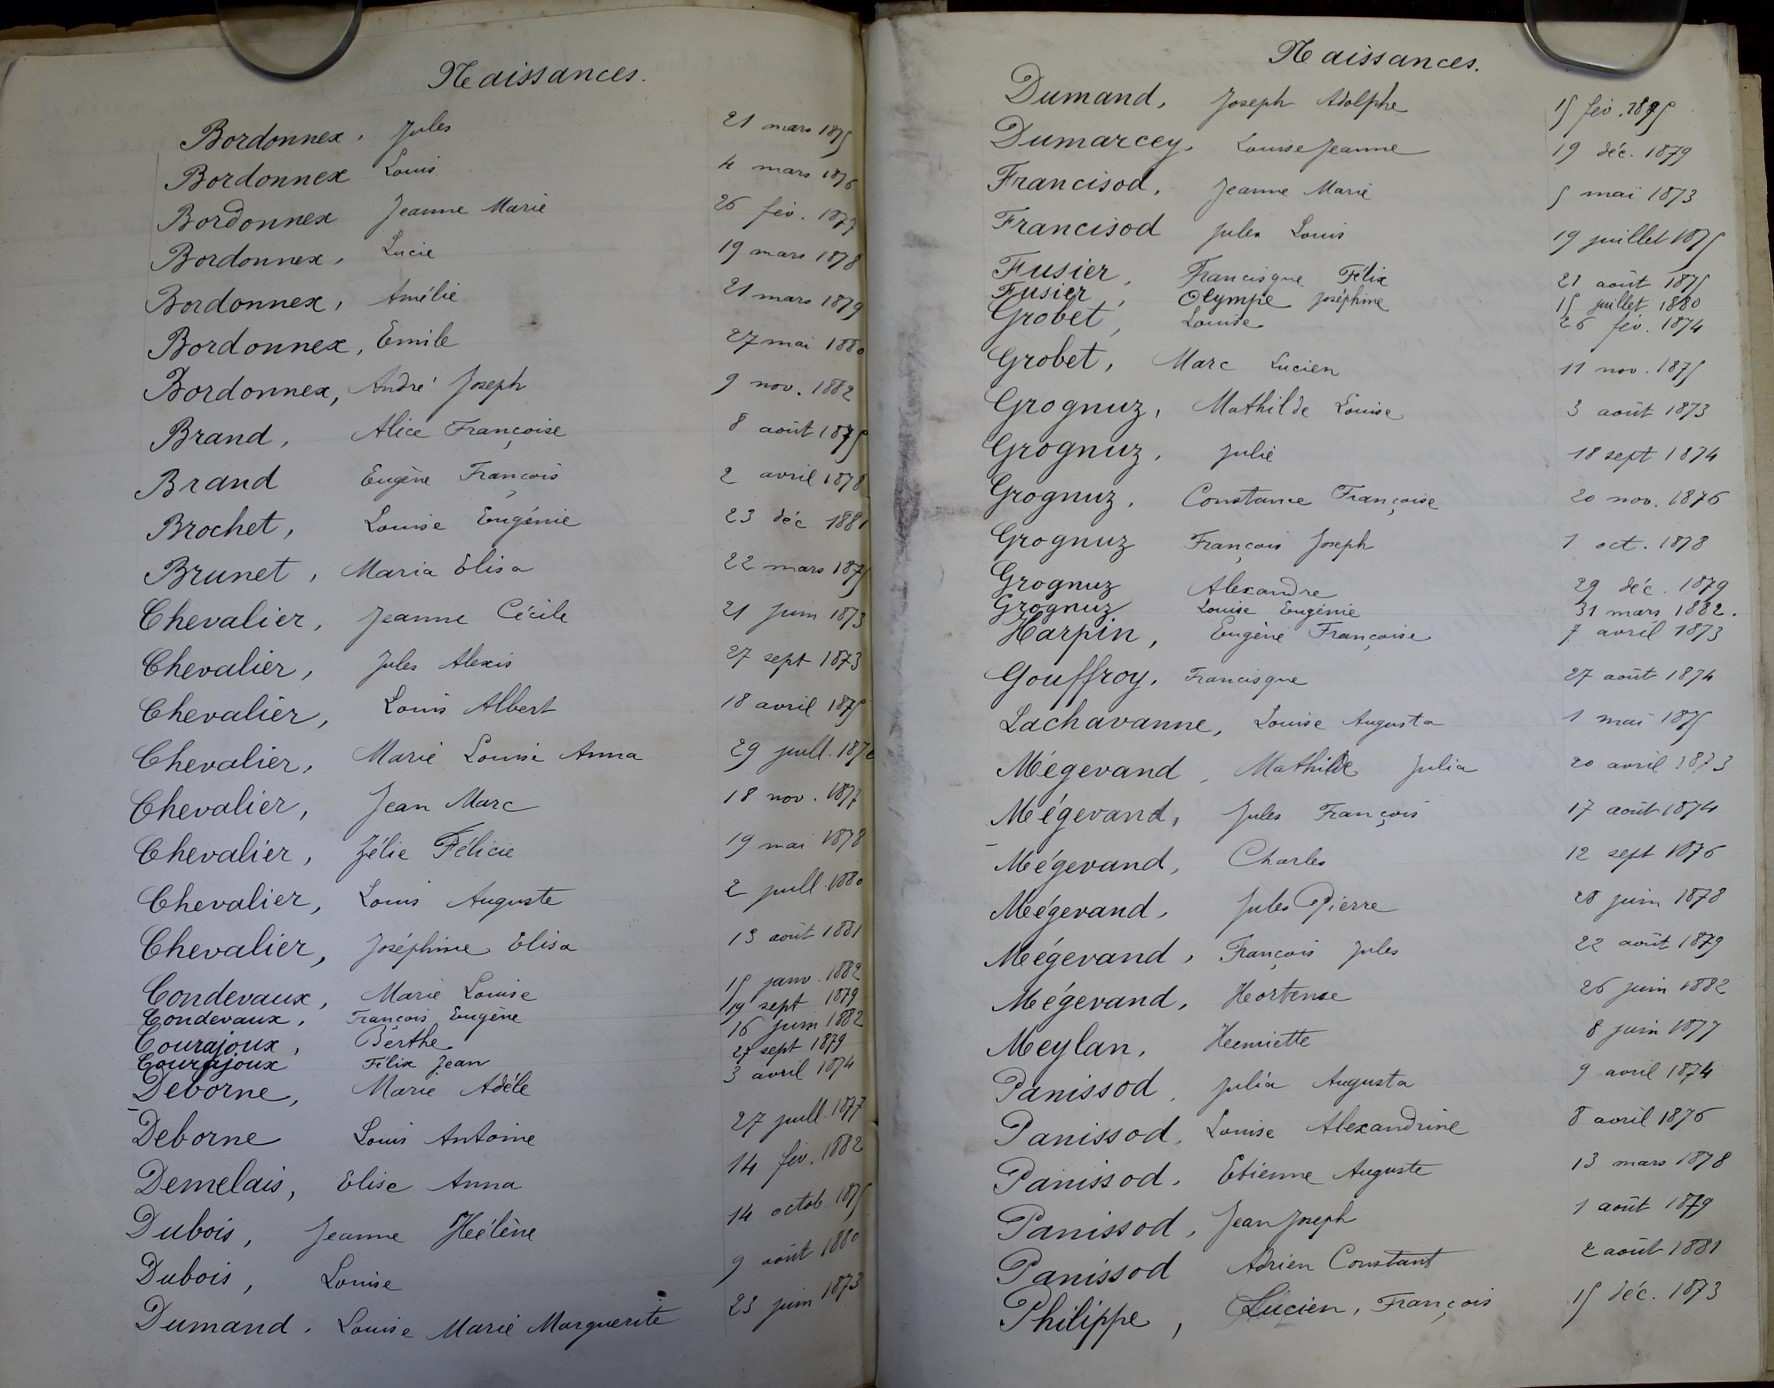 Naissances.
Bordonnex, Jules 21 mars 1875
Bordonnex Louis 4 mars 1876
Bordonnex Jeanne Marie 26 fév. 1877
Bordonnex, Lucie 19 mars 1878
Bordonnex, Amélie 21 mars 1879
Bordonnex, Emile 27 mai 1880
Bordonnex, André Joseph 9 nov. 1882
Brand, Alice Françoise 8 août 1875
Brand Eugène François 2 avril 1878
Brochet, Louise Eugénie 23 déc 1881
Brunet, Maria Elisa 22 mars 1875
Chevalier, Jeanne Cécile 21 juin 1873
Chevalier, Jules Alexis 27 sept 1873
Chevalier, Louis Albert 18 avril 1875
Chevalier, Marie Louise Anna 29 juill. 1876
Chevalier, Jean Marc 18 nov. 1877
Chevalier, Zélie Félicie 19 mai 1878
Chevalier, Louis Auguste 2 juill. 1880
Chevalier, Joséphine Elisa 13 août 1881
Condevaux, Marie Louise 15 janv. 1882
Condevaux, François Eugène 19 sept 1879
Courajoux, Berthe 16 juin 1882
Courajoux Félix Jean 27 sept 1879
Deborne, Marie Adèle 3 avril 1874
Deborne Louis Antoine 27 juill. 1877
Demelais, Elise Anna 14 fév. 1882
Dubois, Jeanne Hélène 14 octob 1875
Dubois, Louise 9 août 1880
Dumand, Louise Marie Marguerite 23 juin 1873
Naissances.
Dumand, Joseph Adolphe 15 fév. 1875
Dumarcey, Louise Jeanne 19 déc. 1879
Francisod, Jeanne Marie 5 mai 1873
Francisod Jules Louis 19 juillet 1875
Fusier, Francisque Félix 21 août 1875
Fusier, Olympe Joséphine 15 juillet 1880
Grobet, Louise 26 fév. 1874
Grobet, Marc Lucien 11 nov. 1875
Grognuz, Mathilde Louise 3 août 1873
Grognuz, Julie 18 sept 1874
Grognuz, Constance Françoise 20 nov. 1876
Grognuz François Joseph 1 oct. 1878
Grognuz Alexandre 29 déc. 1879
Grognuz Louise Eugénie 31 mars 1882.
Harpin, Eugène Françoise 7 avril 1873
Gouffroy, Francisque 27 août 1874
Lachavanne, Louise Augusta 1 mai 1875
Mégevand, Mathilde Julia 20 avril 1873
Mégevand, Jules François 17 août 1874
Mégevand, Charles 12 sept 1876
Mégevand, Jules Pierre 28 juin 1878
Mégevand, François Jules 22 août 1879
Mégevand, Hortense 26 juin 1882
Meylan, Henriette 8 juin 1877
Panissod, Julia Augusta 9 avril 1874
Panissod, Louise Alexandrine 8 avril 1876
Panissod, Etienne Auguste 13 mars 1878
Panissod, Jean Joseph 1 août 1879
Panissod Adrien Constant 2 août 1881
Philippe, Lucien, François 15 déc. 1873